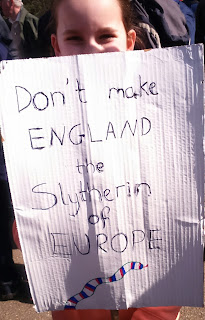 Don't make
ENGLAND
the
Slytherin
of
EUROPE